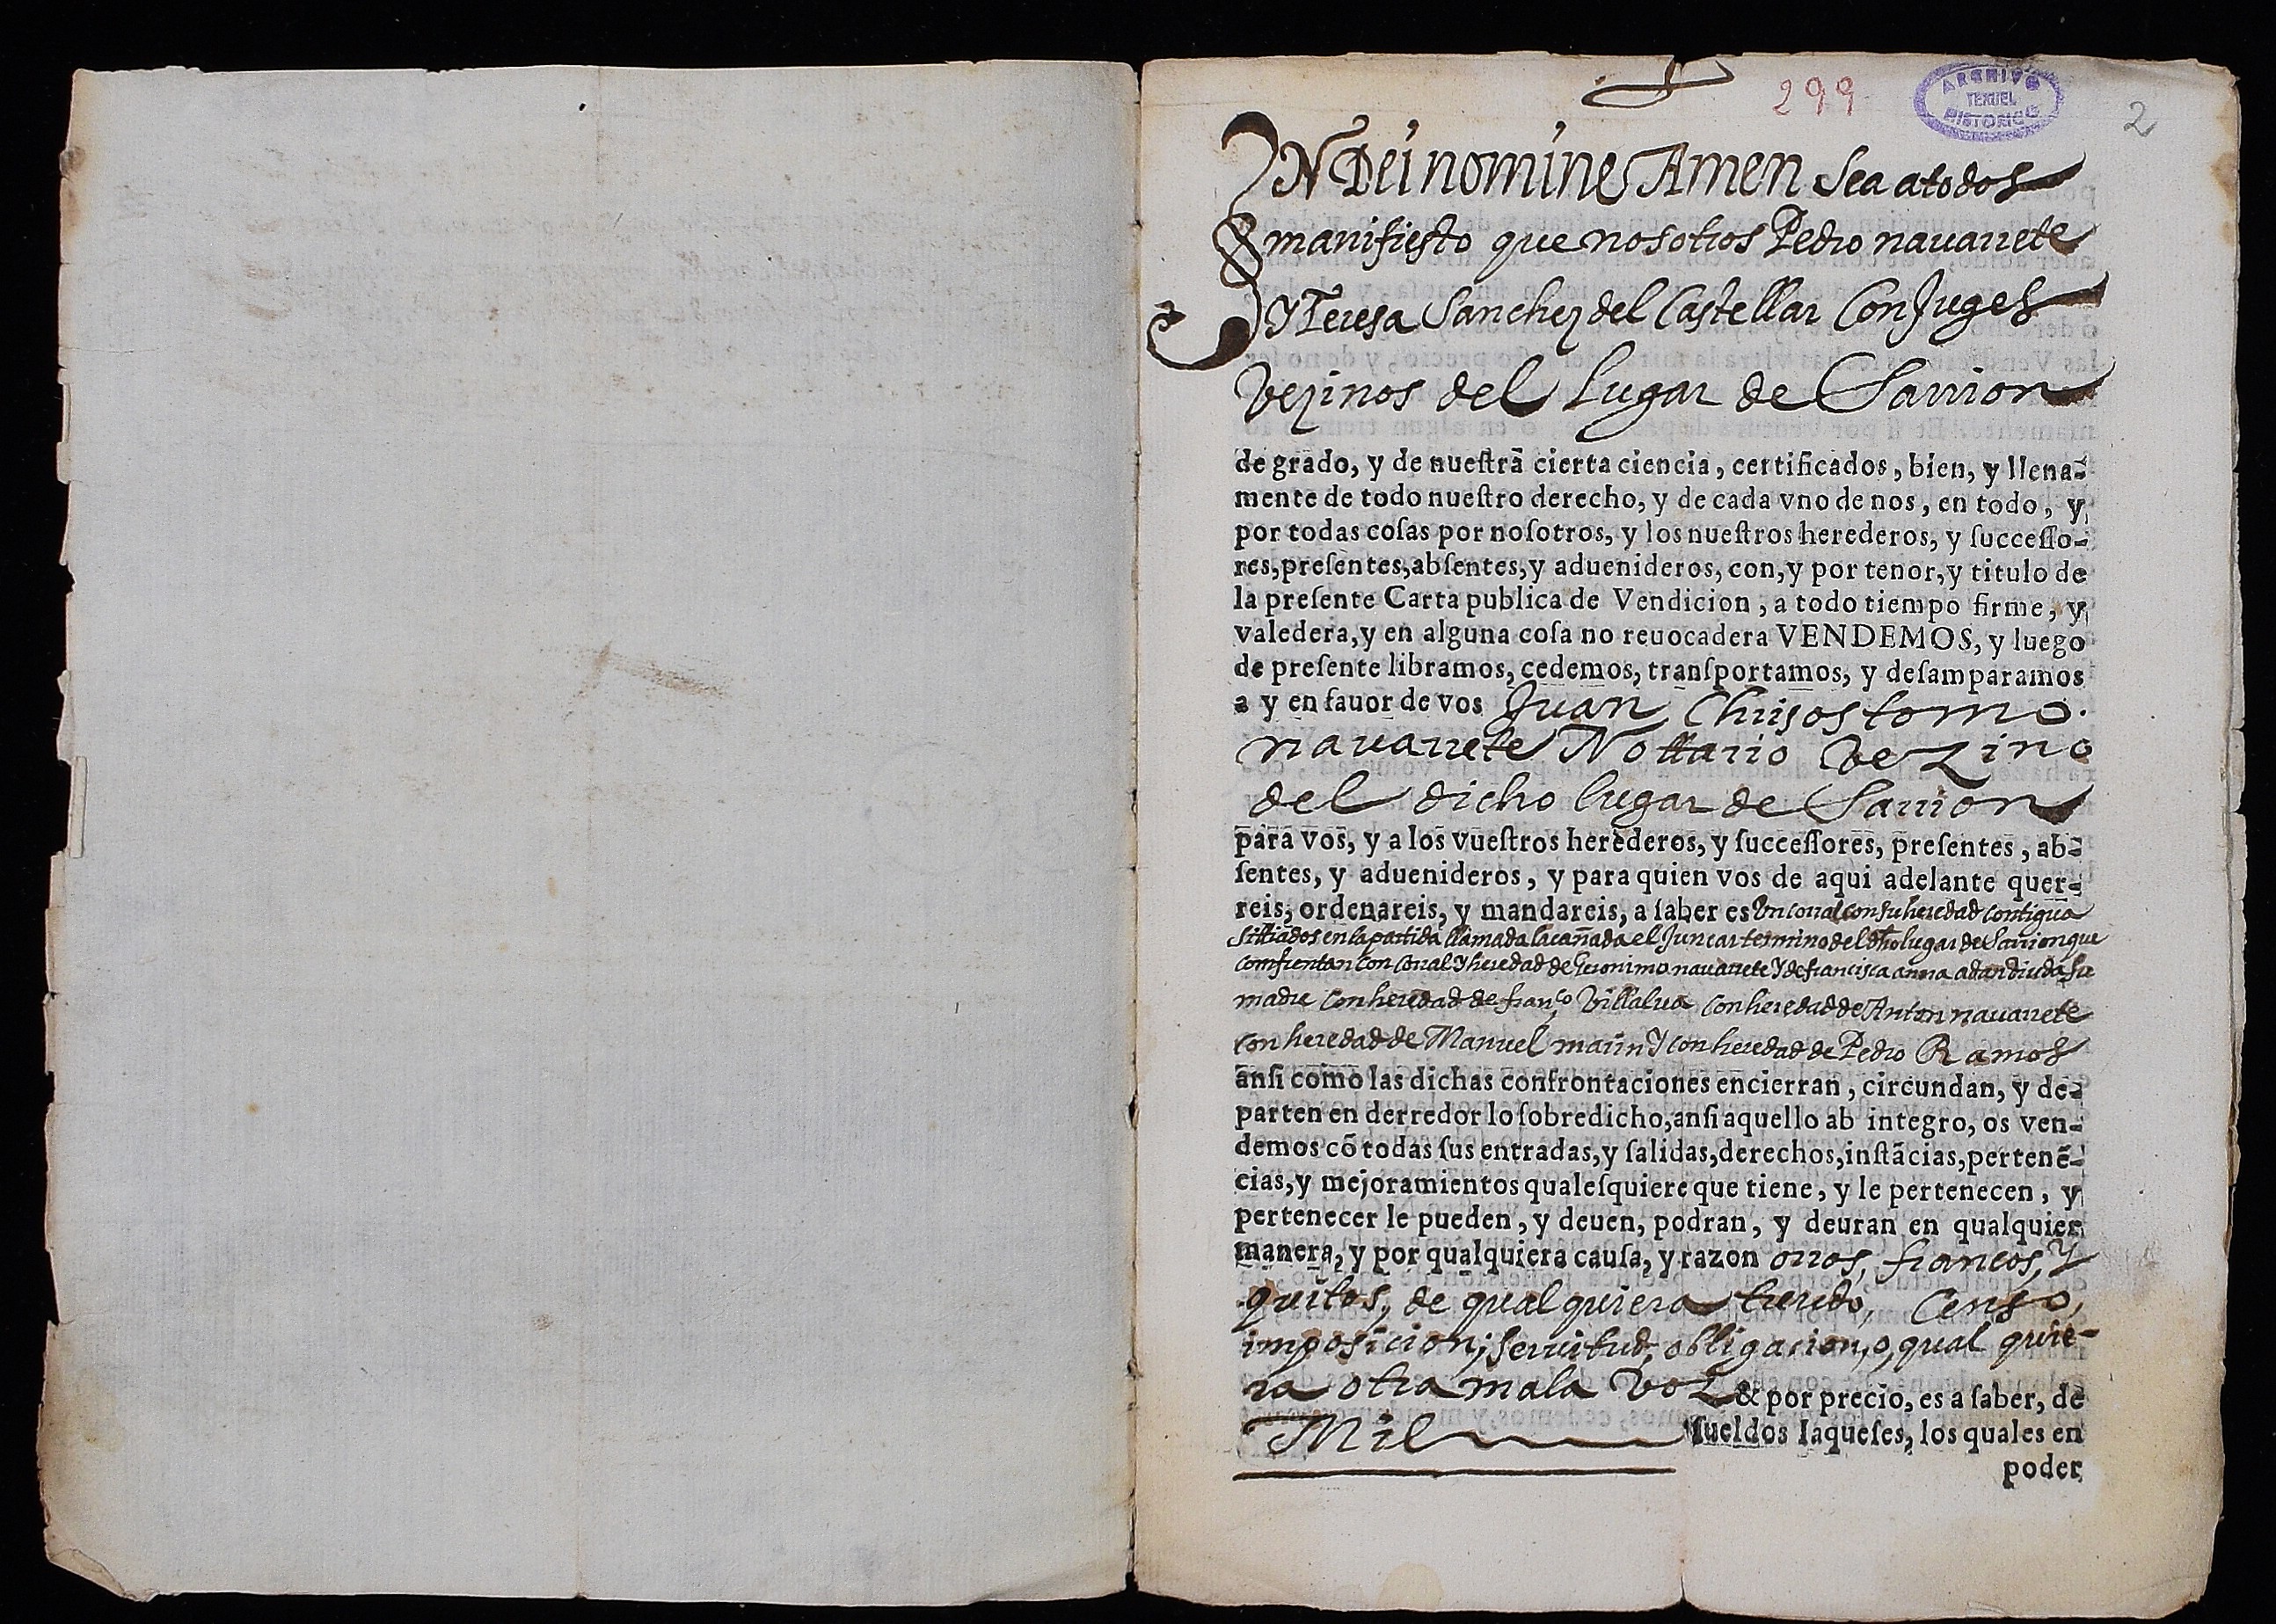 299
ARCHIVO
TERUEL
HISTORICO
2
IN Dei nomine Amen Sea atodos
manifiesto que nosotros Pedro nauarrete
Y Teresa Sanchez del Castellar Conjuges
Vezinos del Lugar de Sarrion
de grado, y de nueſtrā cierta ciencia, certificados, bien, y llena-
mente de todo nueſtro derecho, y de cada vno de nos, en todo, y
por todas coſas por noſotros, y los nueſtros herederos, y ſucceſſo-
res, preſentes, abſentes, y aduenideros, con, y por tenor, y titulo de
la preſente Carta publica de Vendicion, a todo tiempo firme, y
valedera, y en alguna coſa no reuocadera VENDEMOS, y luego
de preſente libramos, cedemos, tranſportamos, y deſamparamos
a y en fauor de vos Juan Chrisostomo.
nauarrete Nottario Vezino
del dicho lugar de Sarrion
para vos, y a los vueſtros herederos, y ſucceſſores, preſentes, ab-
ſentes, y aduenideros, y para quien vos de aqui adelante quer-
reis, ordenareis, y mandareis, a ſaber es Un corral con su heredad contigua
sittiados en la partida llamada la cañada el Juncar termino del dho lugar de Sarrion que
comfrentan con corral Y heredad de Geronimo nauarrete Y de francisca anna adan biuda su
madre con heredad de franco Villalua con heredad de Anton nauarrete
con heredad de Manuel marin Y con heredad de Pedro Ramos
anſi como las dichas confrontaciones encierran, circundan, y de-
parten en derredor lo ſobredicho, anſi aquello ab integro, os ven-
demos cō todas ſus entradas, y ſalidas, derechos, inſtācias, pertenē-
cias, y mejoramientos qualeſquiere que tiene, y le pertenecen, y
pertenecer le pueden, y deuen, podran, y deuran en qualquier
manera, y por qualquiera cauſa, y razon orros, francos, Y
quitos, de qualquiera treudo, Censo,
imposicion; seruitud, obligacion, o, qual quie-
ra otra mala Voz & por precio, es a ſaber, de
Mil ſueldos Iaqueſes, los quales en
poder